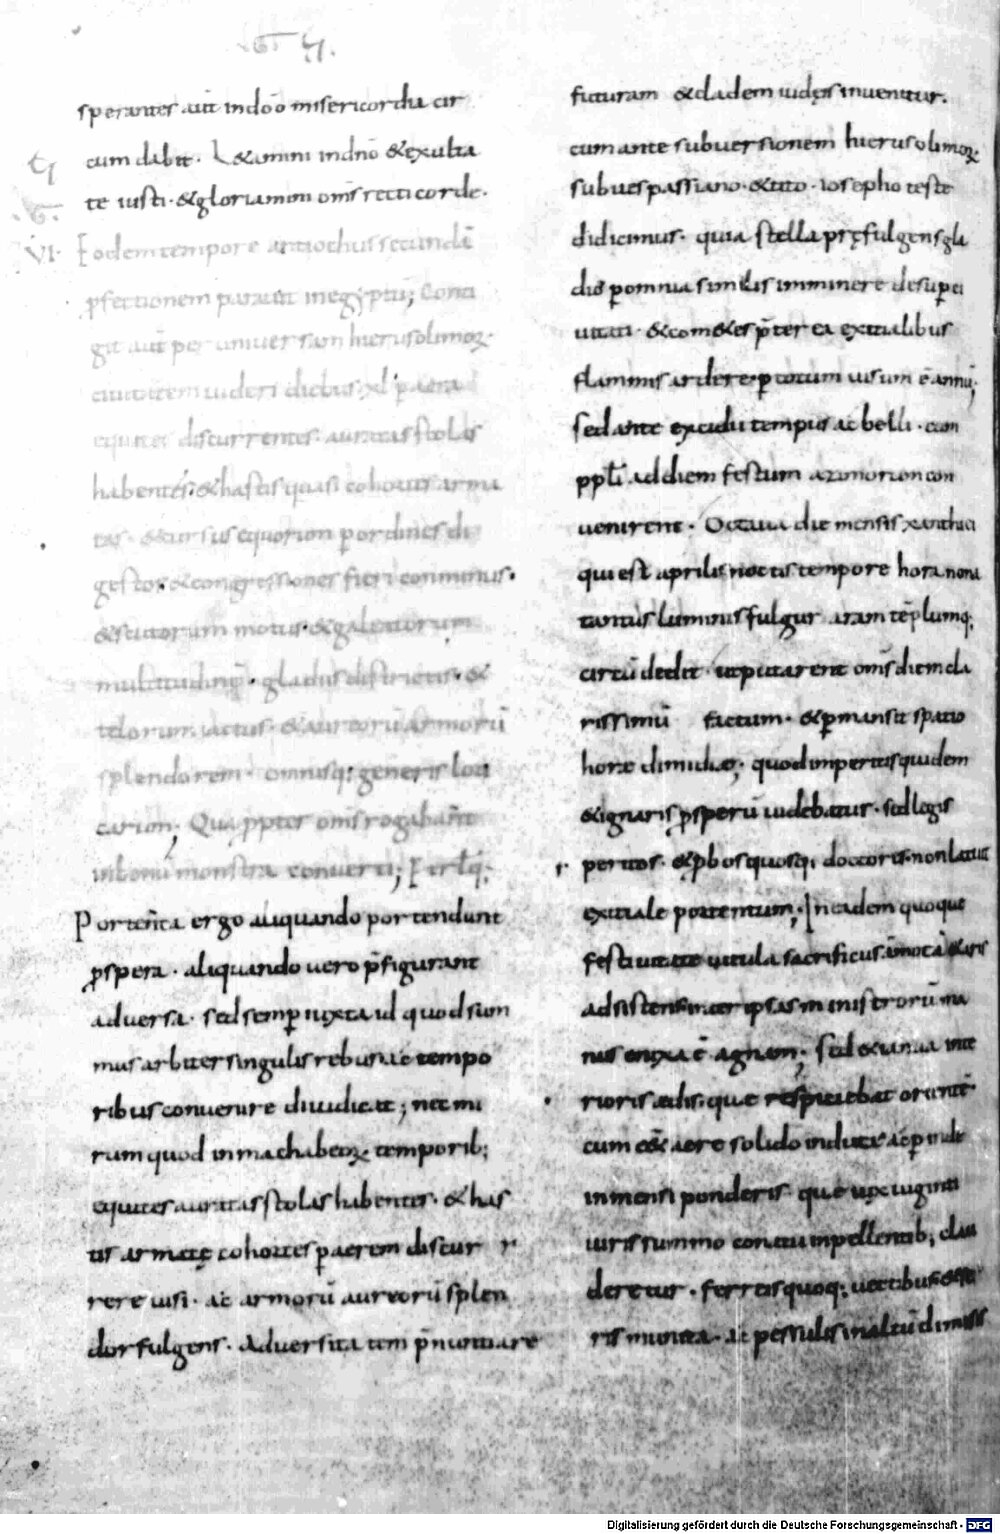 sperantes aut̄ in dn̄o misericordia cir
cum dabit. Laetamini in dn̄o & exulta
te iusti. & gloriamini om̄s recti corde.
VI. Eodem tempore antiochus secundā
pfectionem parauit in egyptū; Conti
git aut̄ per uniuersam hierusolimoꝝ
ciuitatem uideri diebus xl. p aera
equites discurrentes. auratas stolas
habentes. & hastis quasi cohortes arma
tas. & cursus equorum p ordines di
gestos. & congressiones fieri comminus.
& scutorum motus. & galeatorum
multitudinē. gladiis districtis. &
telorum iactus. & aureorū armorū
splendorem. omnisq; generis lori
carum. Quapropter om̄s rogabant
in bonū monstra conuerti; Et rlq;
Portenta ergo aliquando portendunt
prospera. aliquando uero p̄figurant
aduersa. sed semp iuxta id quod sum
mus arbiter singulis rebus ac tempo
ribus conuenire diiudicat; nec mi
rum quod in machabeoꝝ temporib;
equites auratas stolas habentes. & has
tis armatę cohortes p aerem discur
rere uisi. ac armorū aureorū splen
dor fulgens. Aduersitatem p̄nuntiare
futuram & cladem iudęis inuenitur.
cum ante subuersionem hierusolimoꝝ
sub uespassiano. & tito. iosepho teste
didicimus. quia stella pręfulgens gla
dio p omnia similis imminere desup ci
uitati. & cometes p̄ter ea exitialibus
flammis ardere. p totum uisum ē annū;
sed ante excidii tempus ac belli. cum
ppli ad diem festum azimorum con
uenirent. Octaua die mensis xanthici
qui est aprilis noctis tempore hora nona
tantus luminis fulgur aram tēplumq;
circū dedit. ut putarent om̄s diem cla
rissimū factum. & pmansit spatio
horae dimidiae; quod imperitis quidem
& ignaris psperū uidebatur. sed legis
peritos. & pbos quosq; doctoris. non latuit
exitiale portentum; In eadem quoque
festiuitate uitula sacrificiis āmota & aris
adsistens inter ipsas ministrorū ma
nus enixa ē agnum; Sed & ianua inte
rioris aedis. quae respiciebat orientē
cum eēt aere solido induta ac pinde
inmensi ponderis quae uix uiginti
uiris summo conatu inpellentib; clau
deretur. ferreis quoq; uectibus & se
ris munita. ac pessulis in altū dimissis
Digitalisierung gefördert durch die Deutsche Forschungsgemeinschaft - DFG